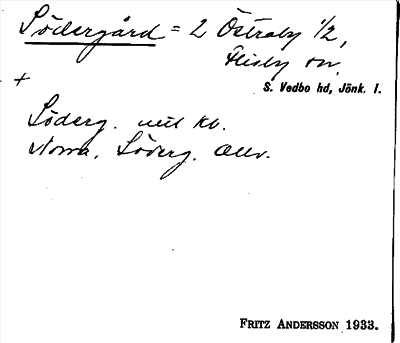 Södergård = 2 Östraby 1/2,
Flisby sn,
+
S. Vedbo hd, Jönk. l.
Söderg. utt kv.
Norra, Söderg. allv.
FRITZ ANDERSSON 1933.